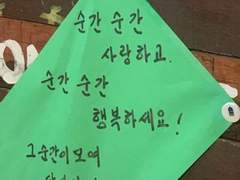 순간 순간
사랑하고.
순간 순간
행복하세요!
그 순간이 모여